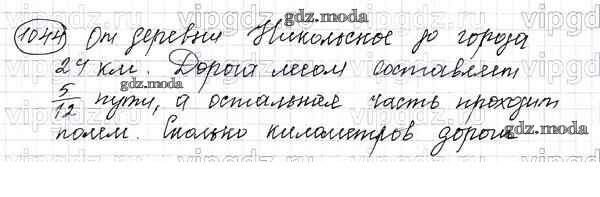 1044 От деревни Никольское до города
24 км. Дорога лесом составляет
5/12 пути, а остальная часть проходит
полем. Сколько километров дорога
gdz.moda
gdz.moda
gdz.moda
gdz.moda
vipgdz
vipgdz
vipgdz
vipgdz